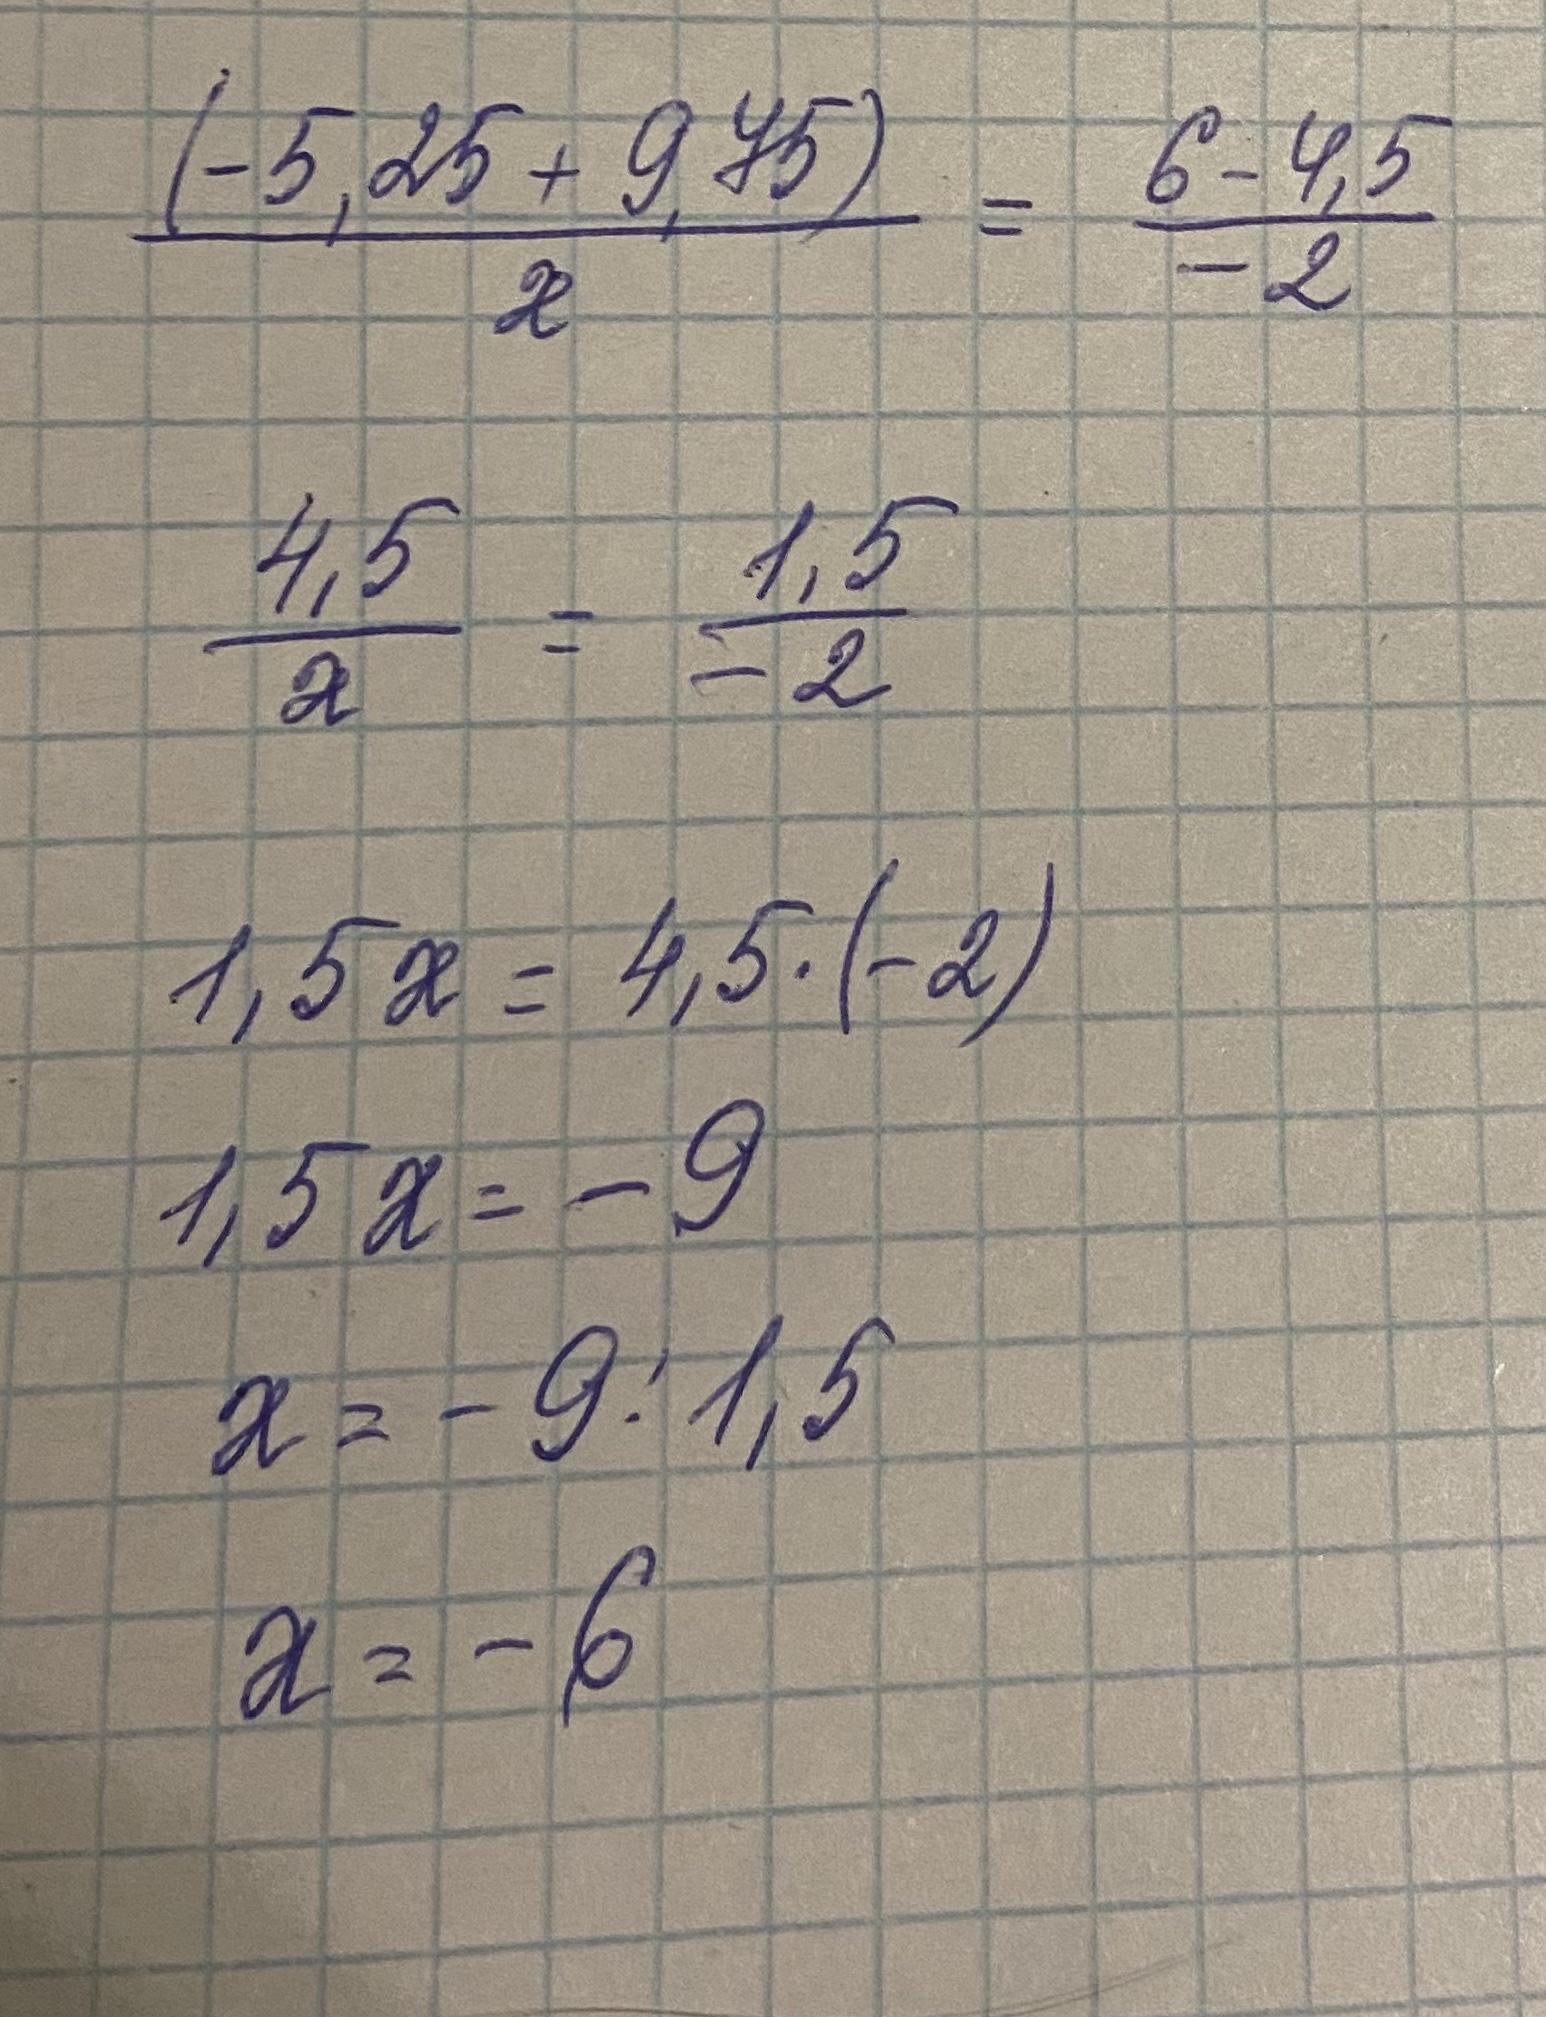 (-5,25 + 9,75) / x = 6 - 4,5 / -2
4,5 / x = 1,5 / -2
1,5x = 4,5 · (-2)
1,5x = -9
x = -9 : 1,5
x = -6